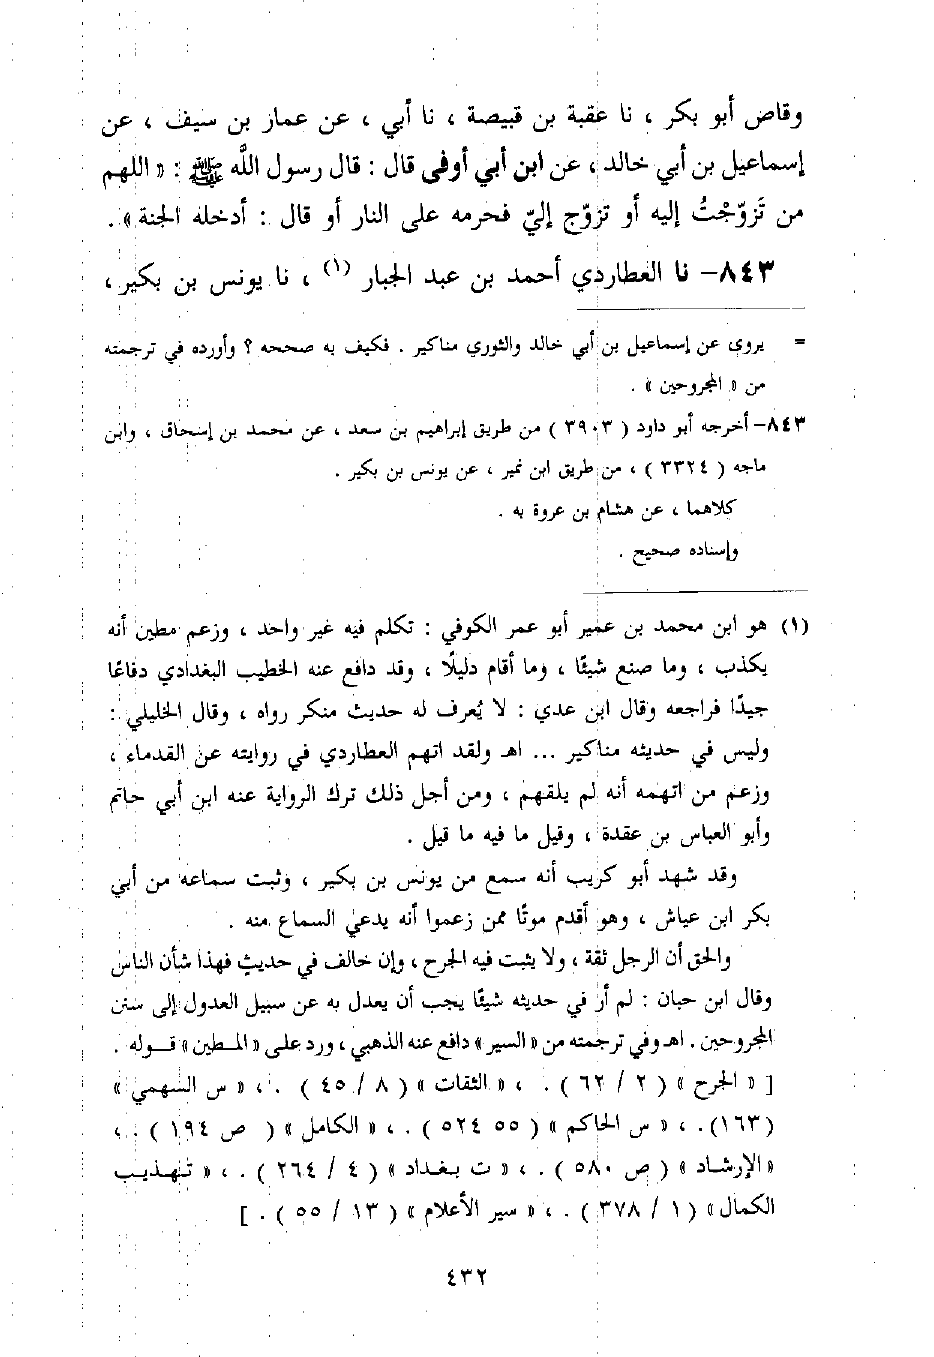 وقاص أبو بكر ، نا عقبة بن قبيصة ، نا أبي ، عن عمار بن سيف ، عن
إسماعيل بن أبي خالد ، عن ابن أبي أوفى قال : قال رسول اللَّه ﷺ : « اللهم
من تَزوّجْتُ إليه أو تزوّج إليّ فحرمه على النار أو قال : أدخله الجنة » .
٨٤٣- نا العطاردي أحمد بن عبد الجبار (١) ، نا يونس بن بكير ،
= يروى عن إسماعيل بن أبي خالد والثوري مناكير . فكيف به صححه ؟ وأورده في ترجمته
من « المجروحين » .
٨٤٣- أخرجه أبو داود ( ٣٩٠٣ ) من طريق إبراهيم بن سعد ، عن محمد بن إسحاق ، وابن
ماجه ( ٣٣٢٤ ) ، من طريق ابن نمير ، عن يونس بن بكير .
كلاهما ، عن هشام بن عروة به .
وإسناده صحيح .
(١) هو ابن محمد بن عمير أبو عمر الكوفي : تكلم فيه غير واحد ، وزعم مطين أنه
يكذب ، وما صنع شيئًا ، وما أقام دليلًا ، وقد دافع عنه الخطيب البغدادي دفاعًا
جيدًا فراجعه وقال ابن عدي : لا يُعرف له حديث منكر رواه ، وقال الخليلي :
وليس في حديثه مناكير ... اهـ ولقد اتهم العطاردي في روايته عن القدماء ،
وزعم من اتهمه أنه لم يلقهم ، ومن أجل ذلك ترك الرواية عنه ابن أبي حاتم
وأبو العباس بن عقدة ، وقيل ما فيه ما قيل .
وقد شهد أبو كريب أنه سمع من يونس بن بكير ، وثبت سماعه من أبي
بكر ابن عياش ، وهو أقدم موتًا ممن زعموا أنه يدعي السماع منه .
والحق أن الرجل ثقة ، ولا يثبت فيه الجرح ، وإن خالف في حديثٍ فهذا شأن الناس
وقال ابن حبان : لم أر في حديثه شيئًا يجب أن يعدل به عن سبيل العدول إلى سنن
المجروحين . اهـ وفي ترجمته من « السير » دافع عنه الذهبي ، ورد على « المطين » قوله .
[ « الجرح » ( ٢ / ٦٢ ) . ، « الثقات » ( ٨ / ٤٥ ) . ، « س السهمي »
(١٦٣). ، « س الحاكم » ( ٥٥ ٥٢٤ ) . ، « الكامل » ( ص ١٩٤ ) . ،
« الإرشاد » ( ص ٥٨٠ ) . ، « ت بغداد » ( ٤ / ٢٦٤ ) . ، « تهذيب
الكمال » ( ١ / ٣٧٨ ) . ، « سير الأعلام » ( ١٣ / ٥٥ ) . ]
٤٣٢